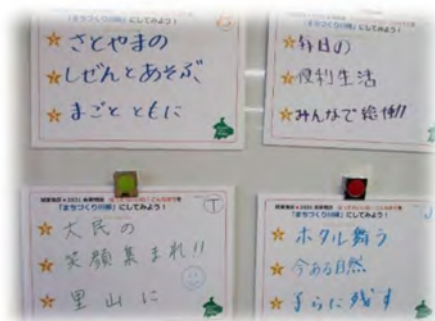 「まちづくり川柳」にしてみよう！
B
さとやまの
しぜんとあそぶ
まごとともに
「まちづくり川柳」にしてみよう！
毎日の
便利生活
みんなで
「まちづくり川柳」にしてみよう！
T
大民の
笑顔集まれ!!
里山に
「まちづくり川柳」にしてみよう！
ホタル舞う
今ある自然
さらに残す